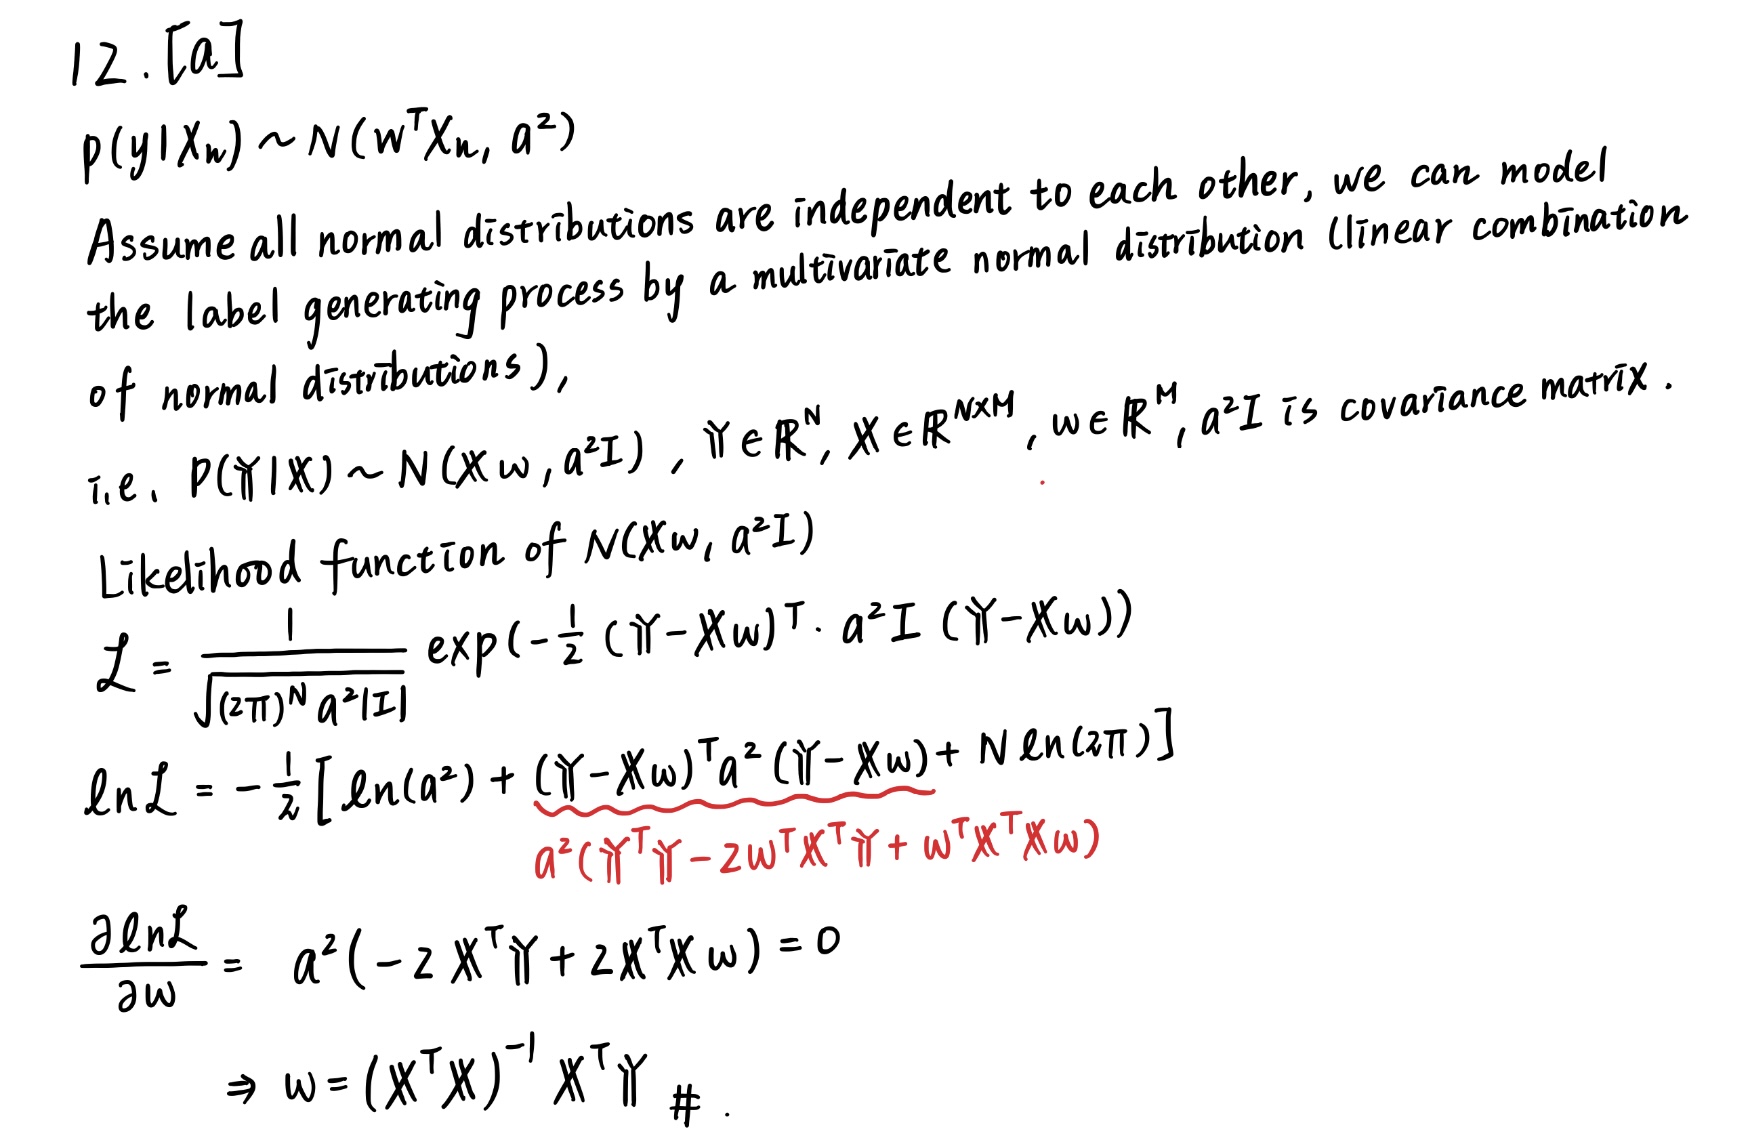 12. [a]
P(y|Xn) ~ N(wᵀXn, a²)
Assume all normal distributions are independent to each other, we can model
the label generating process by a multivariate normal distribution (linear combination
of normal distributions),
i.e. P(𝕐|𝕏) ~ N(𝕏w, a²I), 𝕐∈ℝᴺ, 𝕏∈ℝᴺˣᴹ, w∈ℝᴹ, a²I is covariance matrix.
Likelihood function of N(𝕏w, a²I)
ℒ = 1/√((2π)ᴺ a²|I|) exp(-1/2 (𝕐-𝕏w)ᵀ · a²I (𝕐-𝕏w))
lnℒ = -1/2 [ln(a²) + (𝕐-𝕏w)ᵀa²(𝕐-𝕏w) + N ln(2π)]
a²(𝕐ᵀ𝕐 - 2wᵀ𝕏ᵀ𝕐 + wᵀ𝕏ᵀ𝕏w)
∂lnℒ/∂w = a²(-2𝕏ᵀ𝕐 + 2𝕏ᵀ𝕏w) = 0
⇒ w = (𝕏ᵀ𝕏)⁻¹ 𝕏ᵀ𝕐 #.